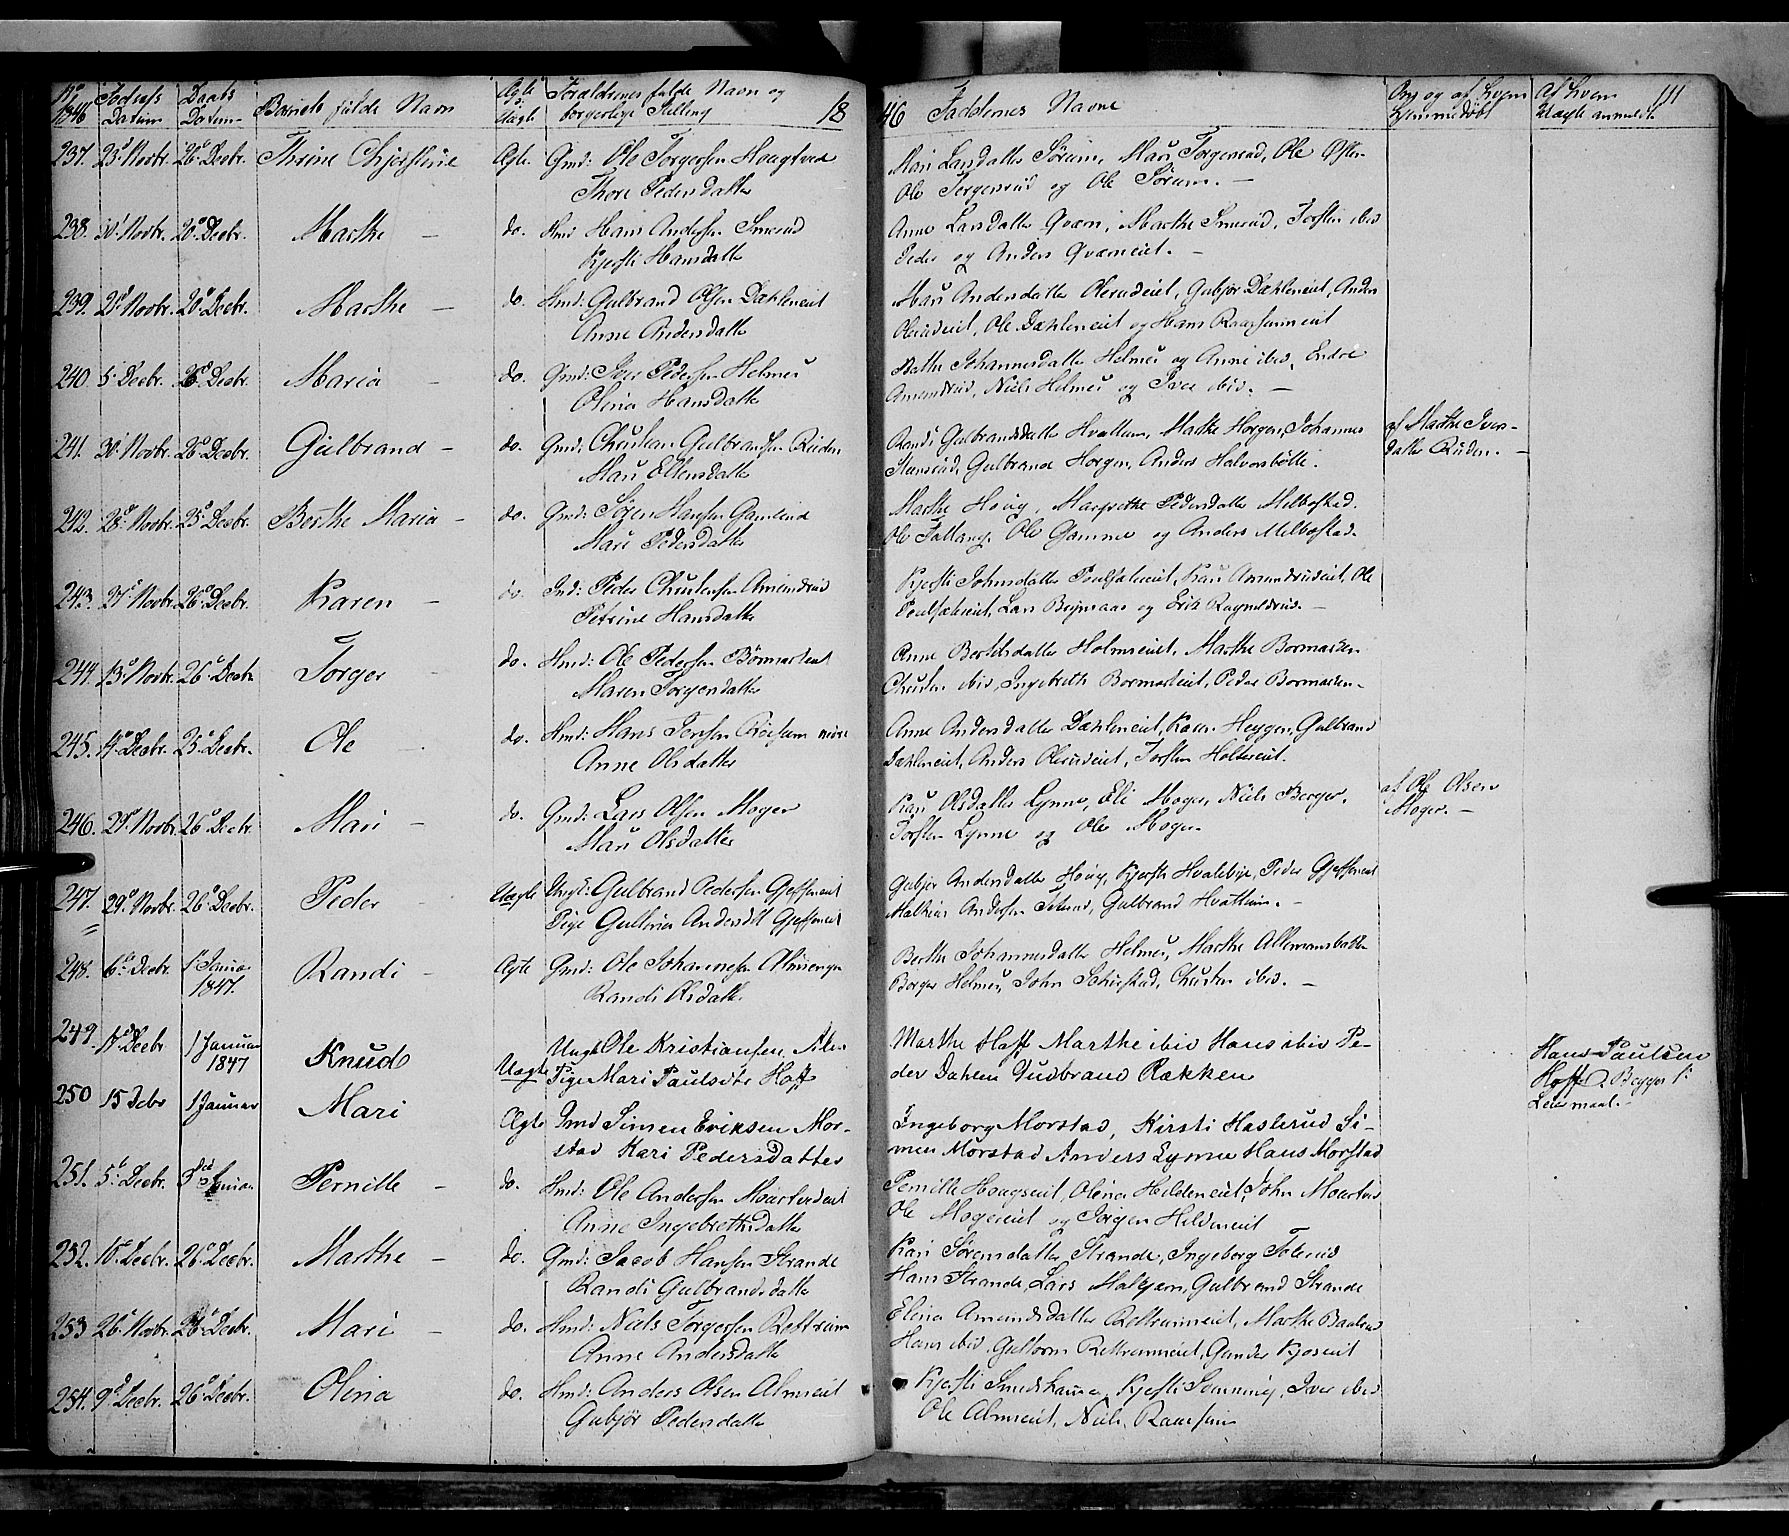 No 1846 Fødsels Datum Daabs Datum Barnets fulde Navn Ægte Uægte Forældrenes fulde Navn og borgerlige Stilling 18
46 Faddernes Navne Om og af hvem hjemmedøbt Af hvem Uægte anmeldt 111
237. 23d Novbr. 26d Decbr. Thrine Chjerstine Ægte. Gmd: Ole Torgersen Hougtved
Thore Pedersdatter
Mari Larsdatter Sørum, Mari Torgersrud, Ole
Ole Torgersrud og Ole Sørum. —
238. Novbr. 26d Decbr. Marthe — do. Hmd Hans Andersen Smerud
Kjersti Hansdatter
Anne Larsdatter Qværn, Marthe Smerud, Torsten ibid
Peder og Anders Qværneiet. —
239. Novbr. 26d Decbr. Marthe — do. Hmd: Gulbrand Olsen Dæhleneiet
Anne Andersdatter
Mari Andersdatter Oleruseiet, Gubjør Dæhleneiet, Anders
Oleruseiet, Ole Dæhleneiet og Hans
240. 5 Decbr. 26d Decbr. Maria — do. Gmd: Iver Pedersen Helmei
Olina Hansdatter
Johannesdatter Helmei og Anne ibid, Endre
Amundrud, Niels Helmei og Iver ibid. —
241. 30 Novbr. 26d Decbr. Gulbrand — do. Gmd: Christen Gulbrandsen Ruden
Mari Ellensdatter
Randi Gulbrandsdatter Hvattum, Marthe Horgen, Johannes
Gulbrand Horgen, Anders Halvorsbølle.
af Marthe Iversdatter Ruden. —
242. 28d Novbr. 25d Decbr. Berthe Maria — do. Gmd: Søren Hansen Gamlind
Mari Pedersdatter
Marthe Høvig, Margrethe Pedersdatter Melbostad.
Ole Fallang, Ole Gamme og Anders Melbostad.
243. 27d Novbr. 26d Decbr. Karen — do. Ind: Peder Christensen Amundrud
Petrine Hansdatter
Kjersti Johnsdatter Poulsæteiet, Kari Amundruseiet, Ole
Poulsæteiet, Lars og Erik Ragneldrud. —
244. 13d Novbr. 26d Decbr. Torger — do. Hmd: Ole Pedersen Børmarkeiet
Maren Torgersdatter
Anne Bertilsdatter Holmseiet, Marthe Bormarken
Christen ibid, Ingebreth Bormarkeiet, Peder Bormarken.
245. Decbr. 25d Decbr. Ole — do. Hmd: Hans Jensen
Anne Olsdatter
Anne Andersdatter Dæhleneiet, Karen Heggen, Gulbrand
Dæhleneiet, Anders Oleruseiet, Torsten Holtereiet.
246. 29d Novbr. 26d Decbr. Mari — do. Gmd: Lars Olsen Moger
Mari Olsdatter
Kari Olsdatter Lynne, Eli Moger, Niels Berger,
Torsten Lynne og Ole Moger.
af Ole Olsen
Moger. —
247. 29d Novbr. 26d Decbr. Peder — Uægte Ungk: Gulbrand Pedersen
Pige Gullina Andersdt
Gubjør Andersdatter Høvig, Kjersti Hvalebye, Peder
Mathias Andersen Gulbrand Hvattum. —
248. 6d Decbr. 1 Janua 1847. Randi — Ægte Gmd: Ole Johannesen Almsengen
Randi Olsdatter
Berthe Johannesdatter Helmei, Marthe
Borger Helmei, John Christen ibid. —
249. 17d Decbr 1 Januar 1847 Knud Uægte Ungk Ole Kristiansen
Pige Mari Paulsdtr Hoff
Marthe Hoff Marthe ibid Hans ibid Pe-
der Dahlen Gudbrand Rækken
Hans Paulsen
Hoff. D. Begges 1.
Leiermaal.
250 15 Debr 1 Januar Mari Ægte Gmd Simen Eriksen Mor-
stad Kari Pedersdatter
Ingeborg Morstad, Kirsti Haslerud Si-
men Morstad Anders Lynne Hans Morstad
251. 5d Decbr. Janua. Pernille — do. Hmd: Ole Andersen
Anne Ingebrethsdatter
Pernille Hougseiet, Olina Hildeneiet, John
Ole Mogereiet og Jørgen Hildeneiet
252. 16d Decbr. 26d Decbr. Marthe — do. Gmd: Jacob Hansen Strande
Randi Gulbrandsdatter
Kari Sørensdatter Strande, Ingeborg
Hans Strande, Lars Gulbrand Strande
253 26d Novbr. 26d Decbr. Mari — do. Hmd: Niels Torgersen Rettrum
Anne Andersdatter
Elina Amundsdatter Rettrumeiet, Marthe
Hans ibid, Guttorm Rettrumeiet, Gunder Kjoseiet
254. 9d Decbr. 26d Decbr. Olina do. Hmd: Anders Olsen Almseiet
Gubjør Pedersdatter
Kjersti Smedshammer, Kjersti Iver ibid
Ole Almseiet, Niels